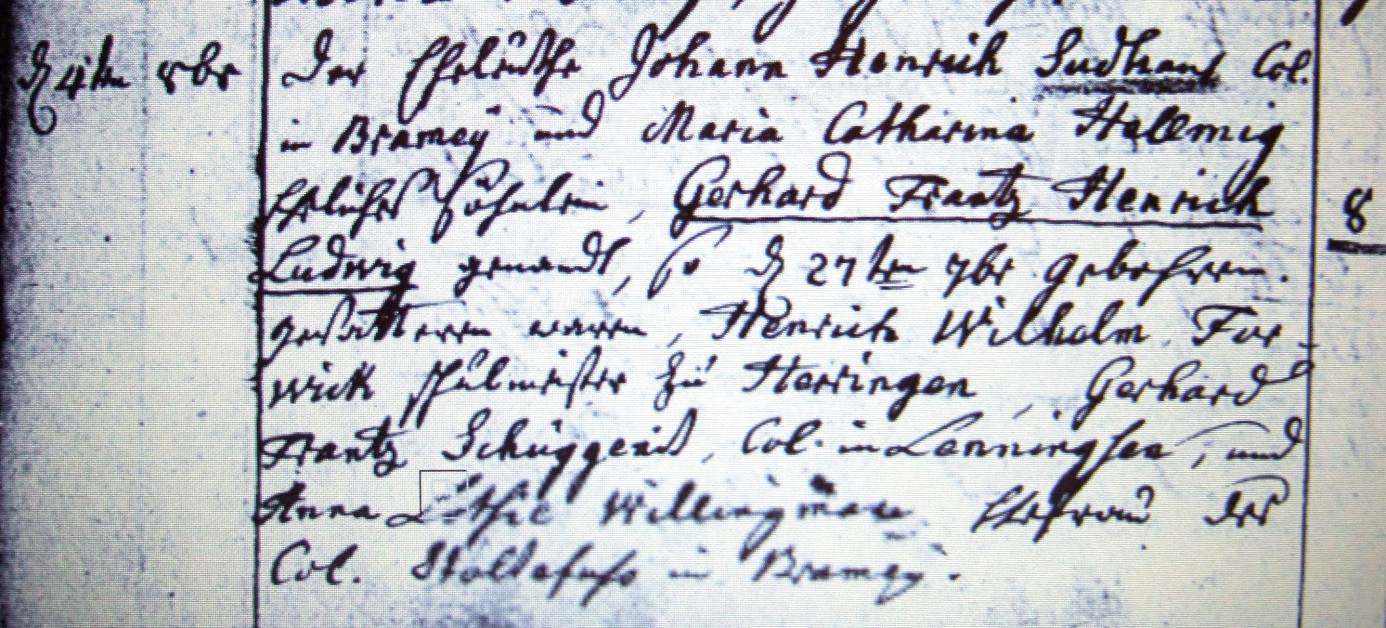 d 4ten 8br der Eheleuthe Johann Henrich Sudhaus Col.
in Bramey und Maria Catharina Hellmig
Eheliches Söhnlein, Gerhard Frantz Henrich 8
Ludwig genandt, so d 27ten 7br gebohren.
gevatteren waren, Henrich Wilhelm For-
wick schulmeister zu Herringen, Gerhard
Frantz Col. in Lenningsen, und
Anna Willingmann Ehefrau des
Col. Stoltefuss in Bramey.